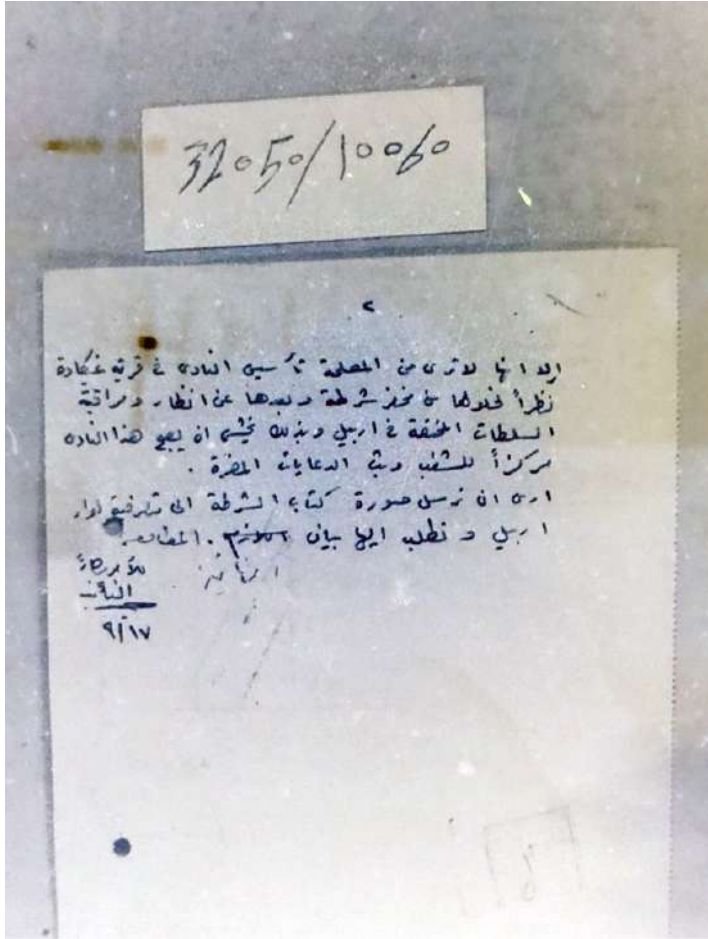 32050/10060
٢
الا انها لا ترى من المصلحة تأسيس النادي في قرية عنكاوة
نظراً لخلوها من مخفر شرطة وبعدها عن انظار ومراقبة
السلطات المختصة في اربيل وبذلك يخشى ان يصبح هذا النادي
مركزاً للشغب وبث الدعايات المضرة .
ارى ان نرسل صورة كتاب الشرطة الى متصرفية لواء
اربيل و نطلب اليها بيان
٩/١٧